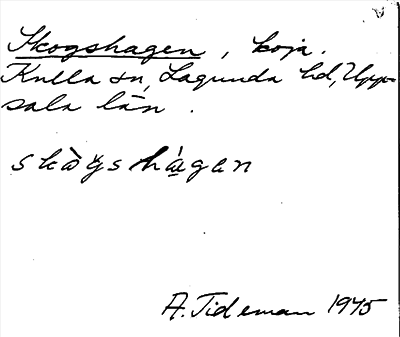 Skogshagen, koja.
Kulla sn, Lagunda hd, Upp-
sala län.
skògshàgen
A. Tideman 1945